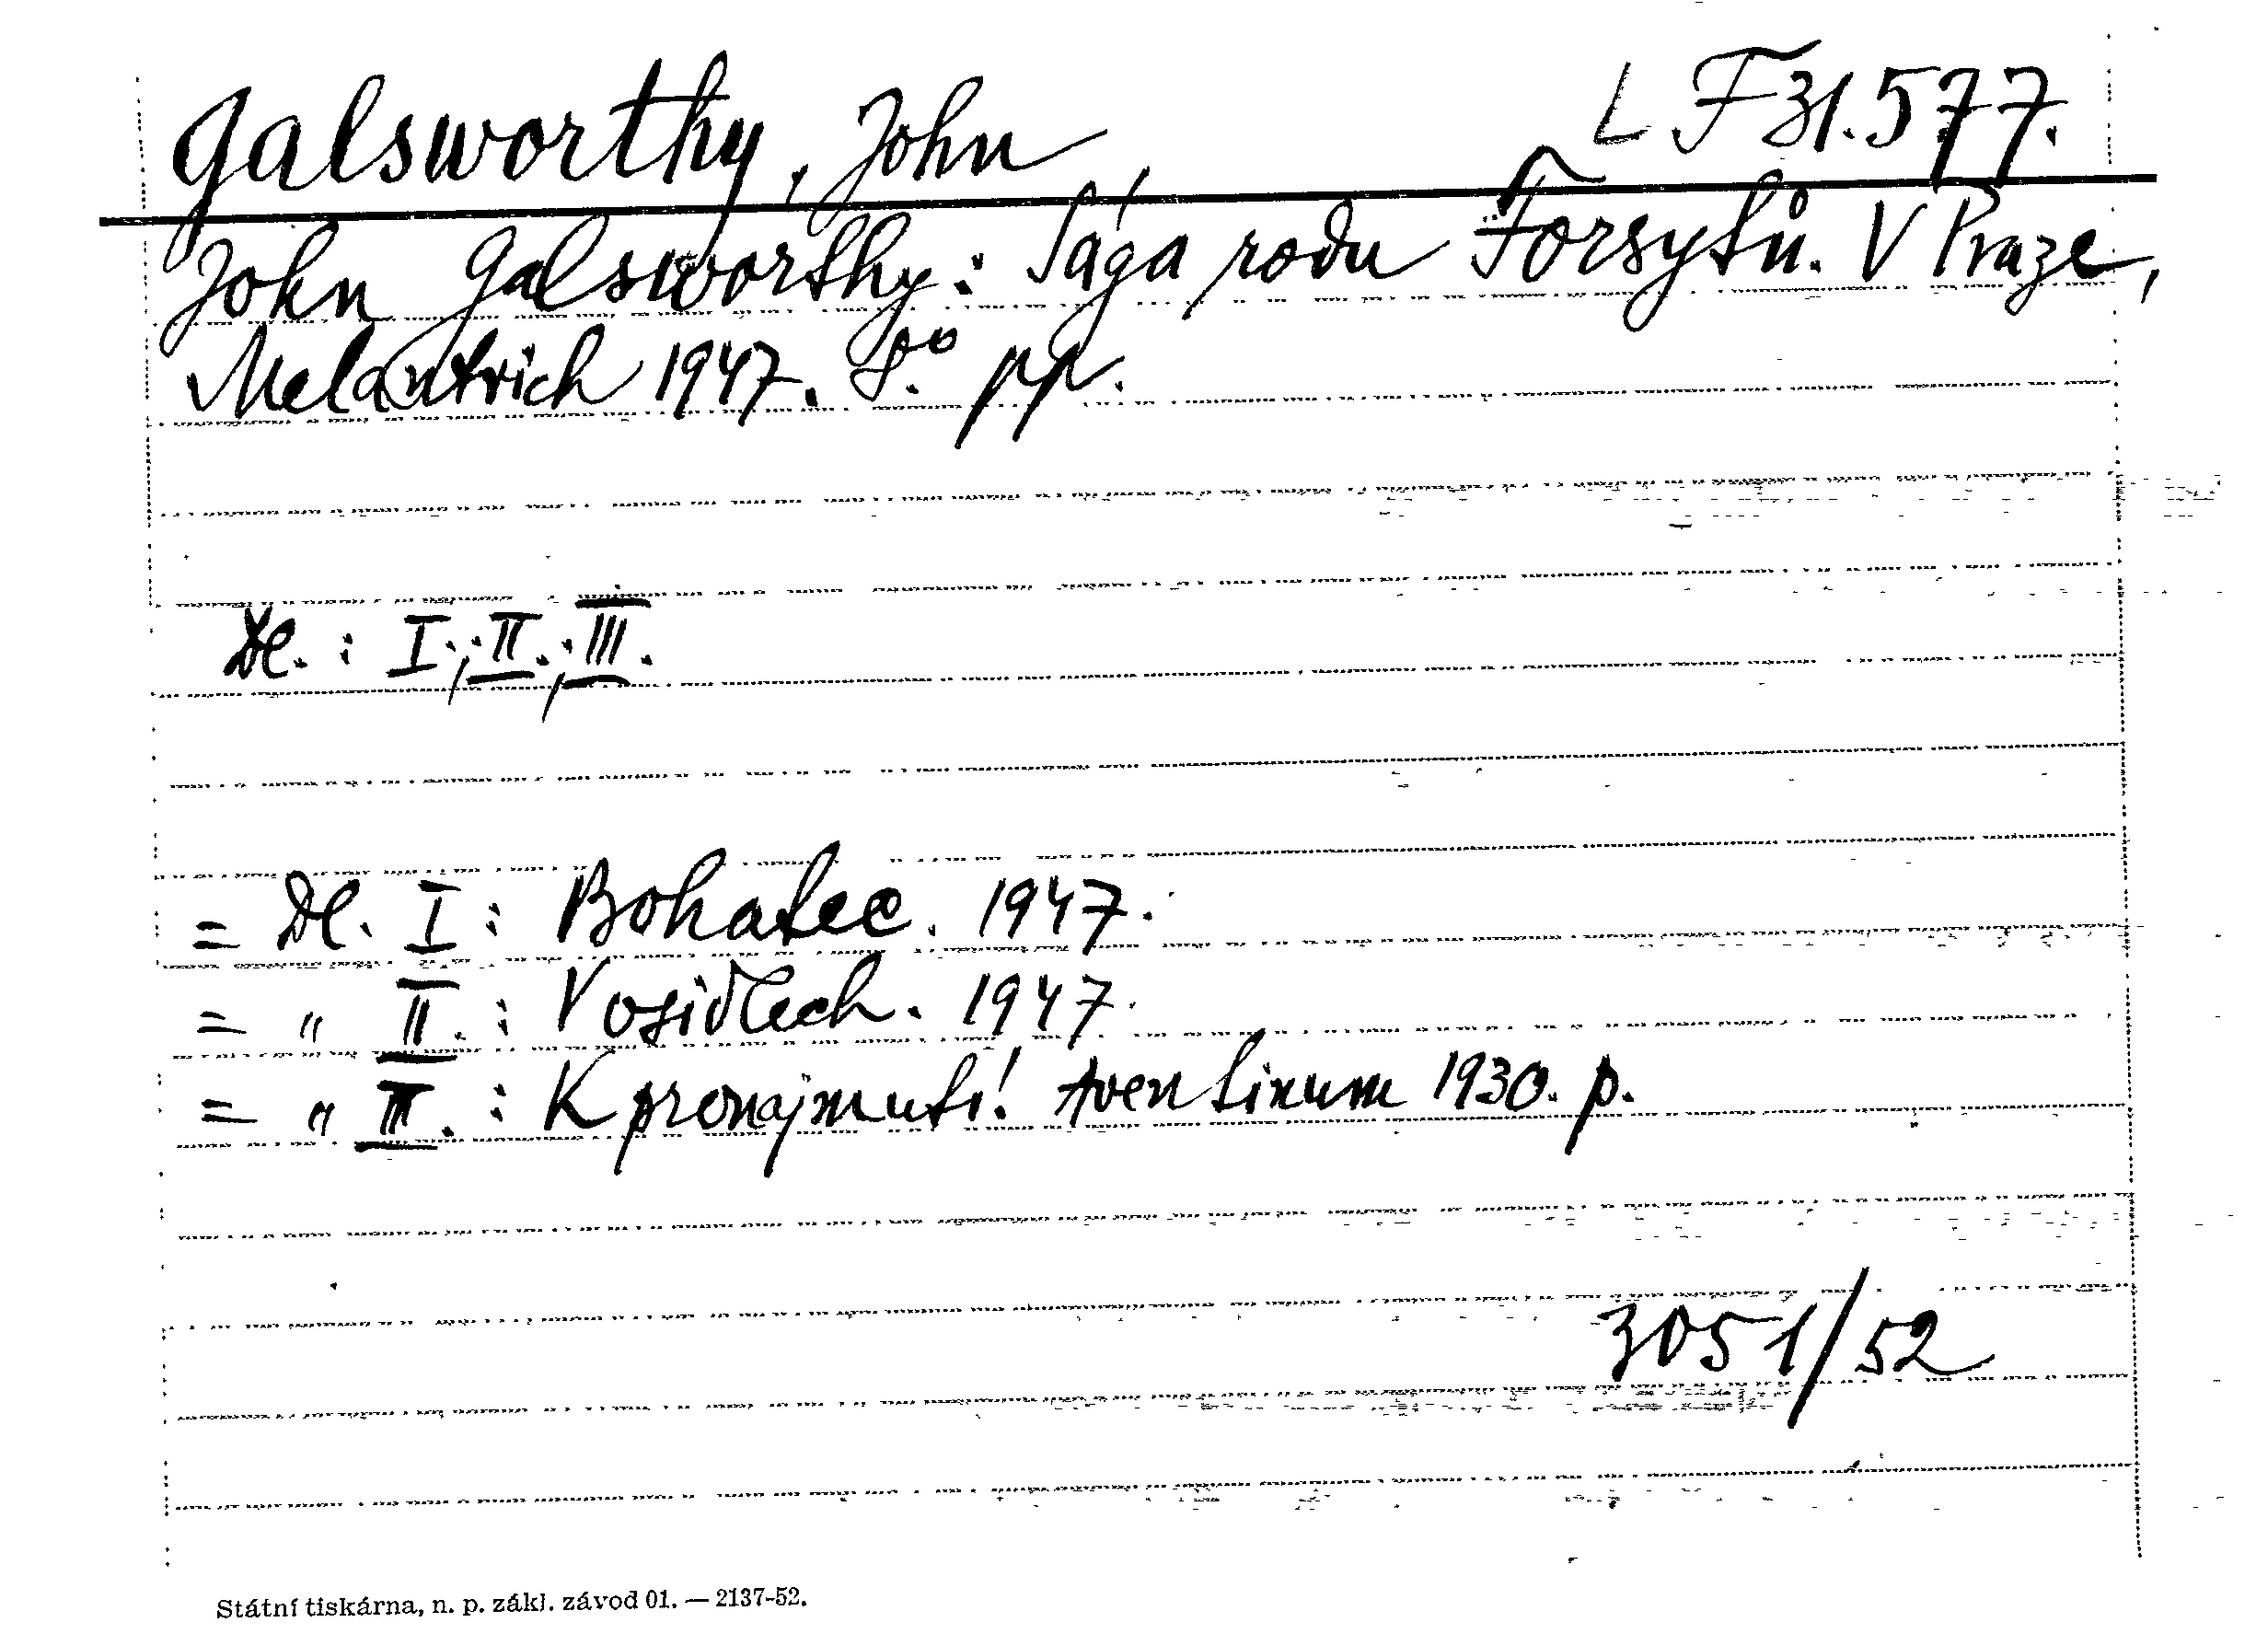 Galsworthy, John L F 31.577.
John Galsworthy: Sága rodu Forsytů. V Praze,
Melantrich 1947. 8.° pp.
Dl.: I., II., III.
= Dl. I: Bohatec. 1947.
= " II.: V osidlech. 1947.
= " III.: K pronajmutí! Aventinum 1930. p.
3051/52
Státní tiskárna, n. p. zákl. závod 01. — 2137-52.